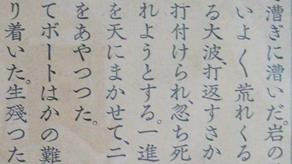 漕ぎに漕いだ。岩の
いよく荒れくる
る大波、打返すさか
打付けられ、忽ち死
れようとする。一進
を天にまかせて、二
をあやつつた。
てボートはかの難
り着いた。生殘つた